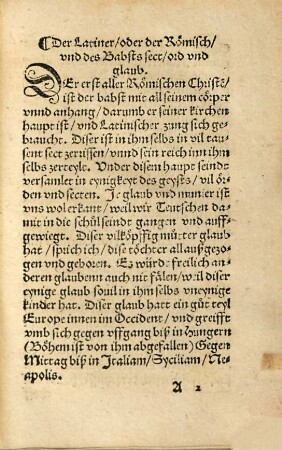 ¶ Der Latiner/oder der Römisch/
vnd des Babsts sect/ord vnd
glaub.
DEr erst aller Römischen Christē/
ist der babst mit all seinem cörper
vnnd anhang/darumb er seiner kirchen
haupt ist/vnd Latinischer zung sich ge-
braucht. Diser ist in ihm selbs in vil tau-
sent sect zerrissen/vnnd sein reich inn ihm
selbs zerteylt. Vnder disem haupt seindt
versamlet in eynigkeyt des geysts/vil ör-
den vnd secten. Je glaub vnd munier ist
vns wol erkant/weil wir Teutschen da-
mit in die schůl seindt gangen vnd auff-
gewiegt. Diser vilköpffig můter glaub
hat/sprich ich/dise töchter all außgezo-
gen vnd geboren. Ez würde freilich an-
deren glaubenn auch nit fälen/weil diser
eynige glaub souil in ihm selbs vneynige
kinder hat. Diser glaub hatt ein gůt teyl
Europe innen im Occident/vnd greifft
vmb sich gegen vffgang biß in Hungern
(Böhem ist von ihm abgefallen) Gegen
Mittag biß in Italiam/Syciliam/Ne-
apolis.
A 2